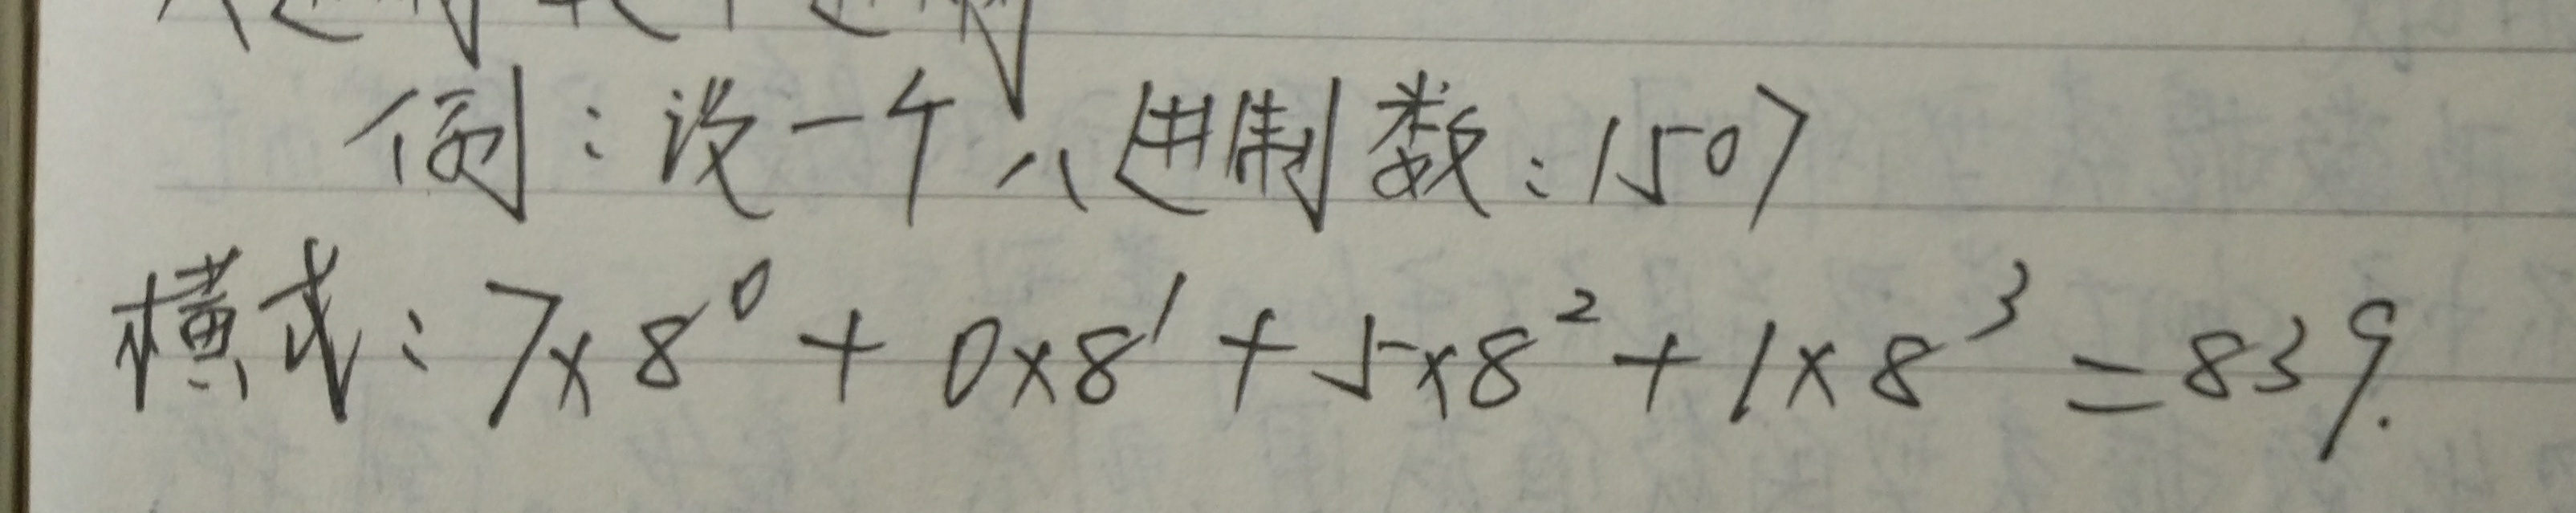 例：设一个八进制数：1507
横式：7×8⁰ + 0×8¹ + 5×8² + 1×8³ = 839.